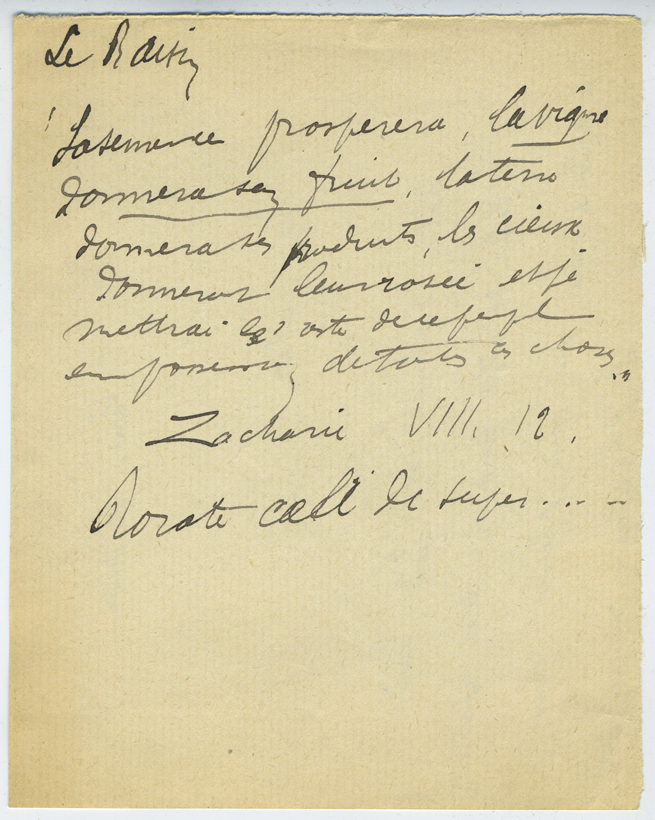 Le Raisin
"La semence prosperera, la vigne
donnera son fruit, la terre
donnera ses produits, les cieux
donneront leur rosée et je
mettrai les reste de ce peuple
en possession de toutes ces choses.."
Zacharie VIII. 12.
Rorate cœli de super.....